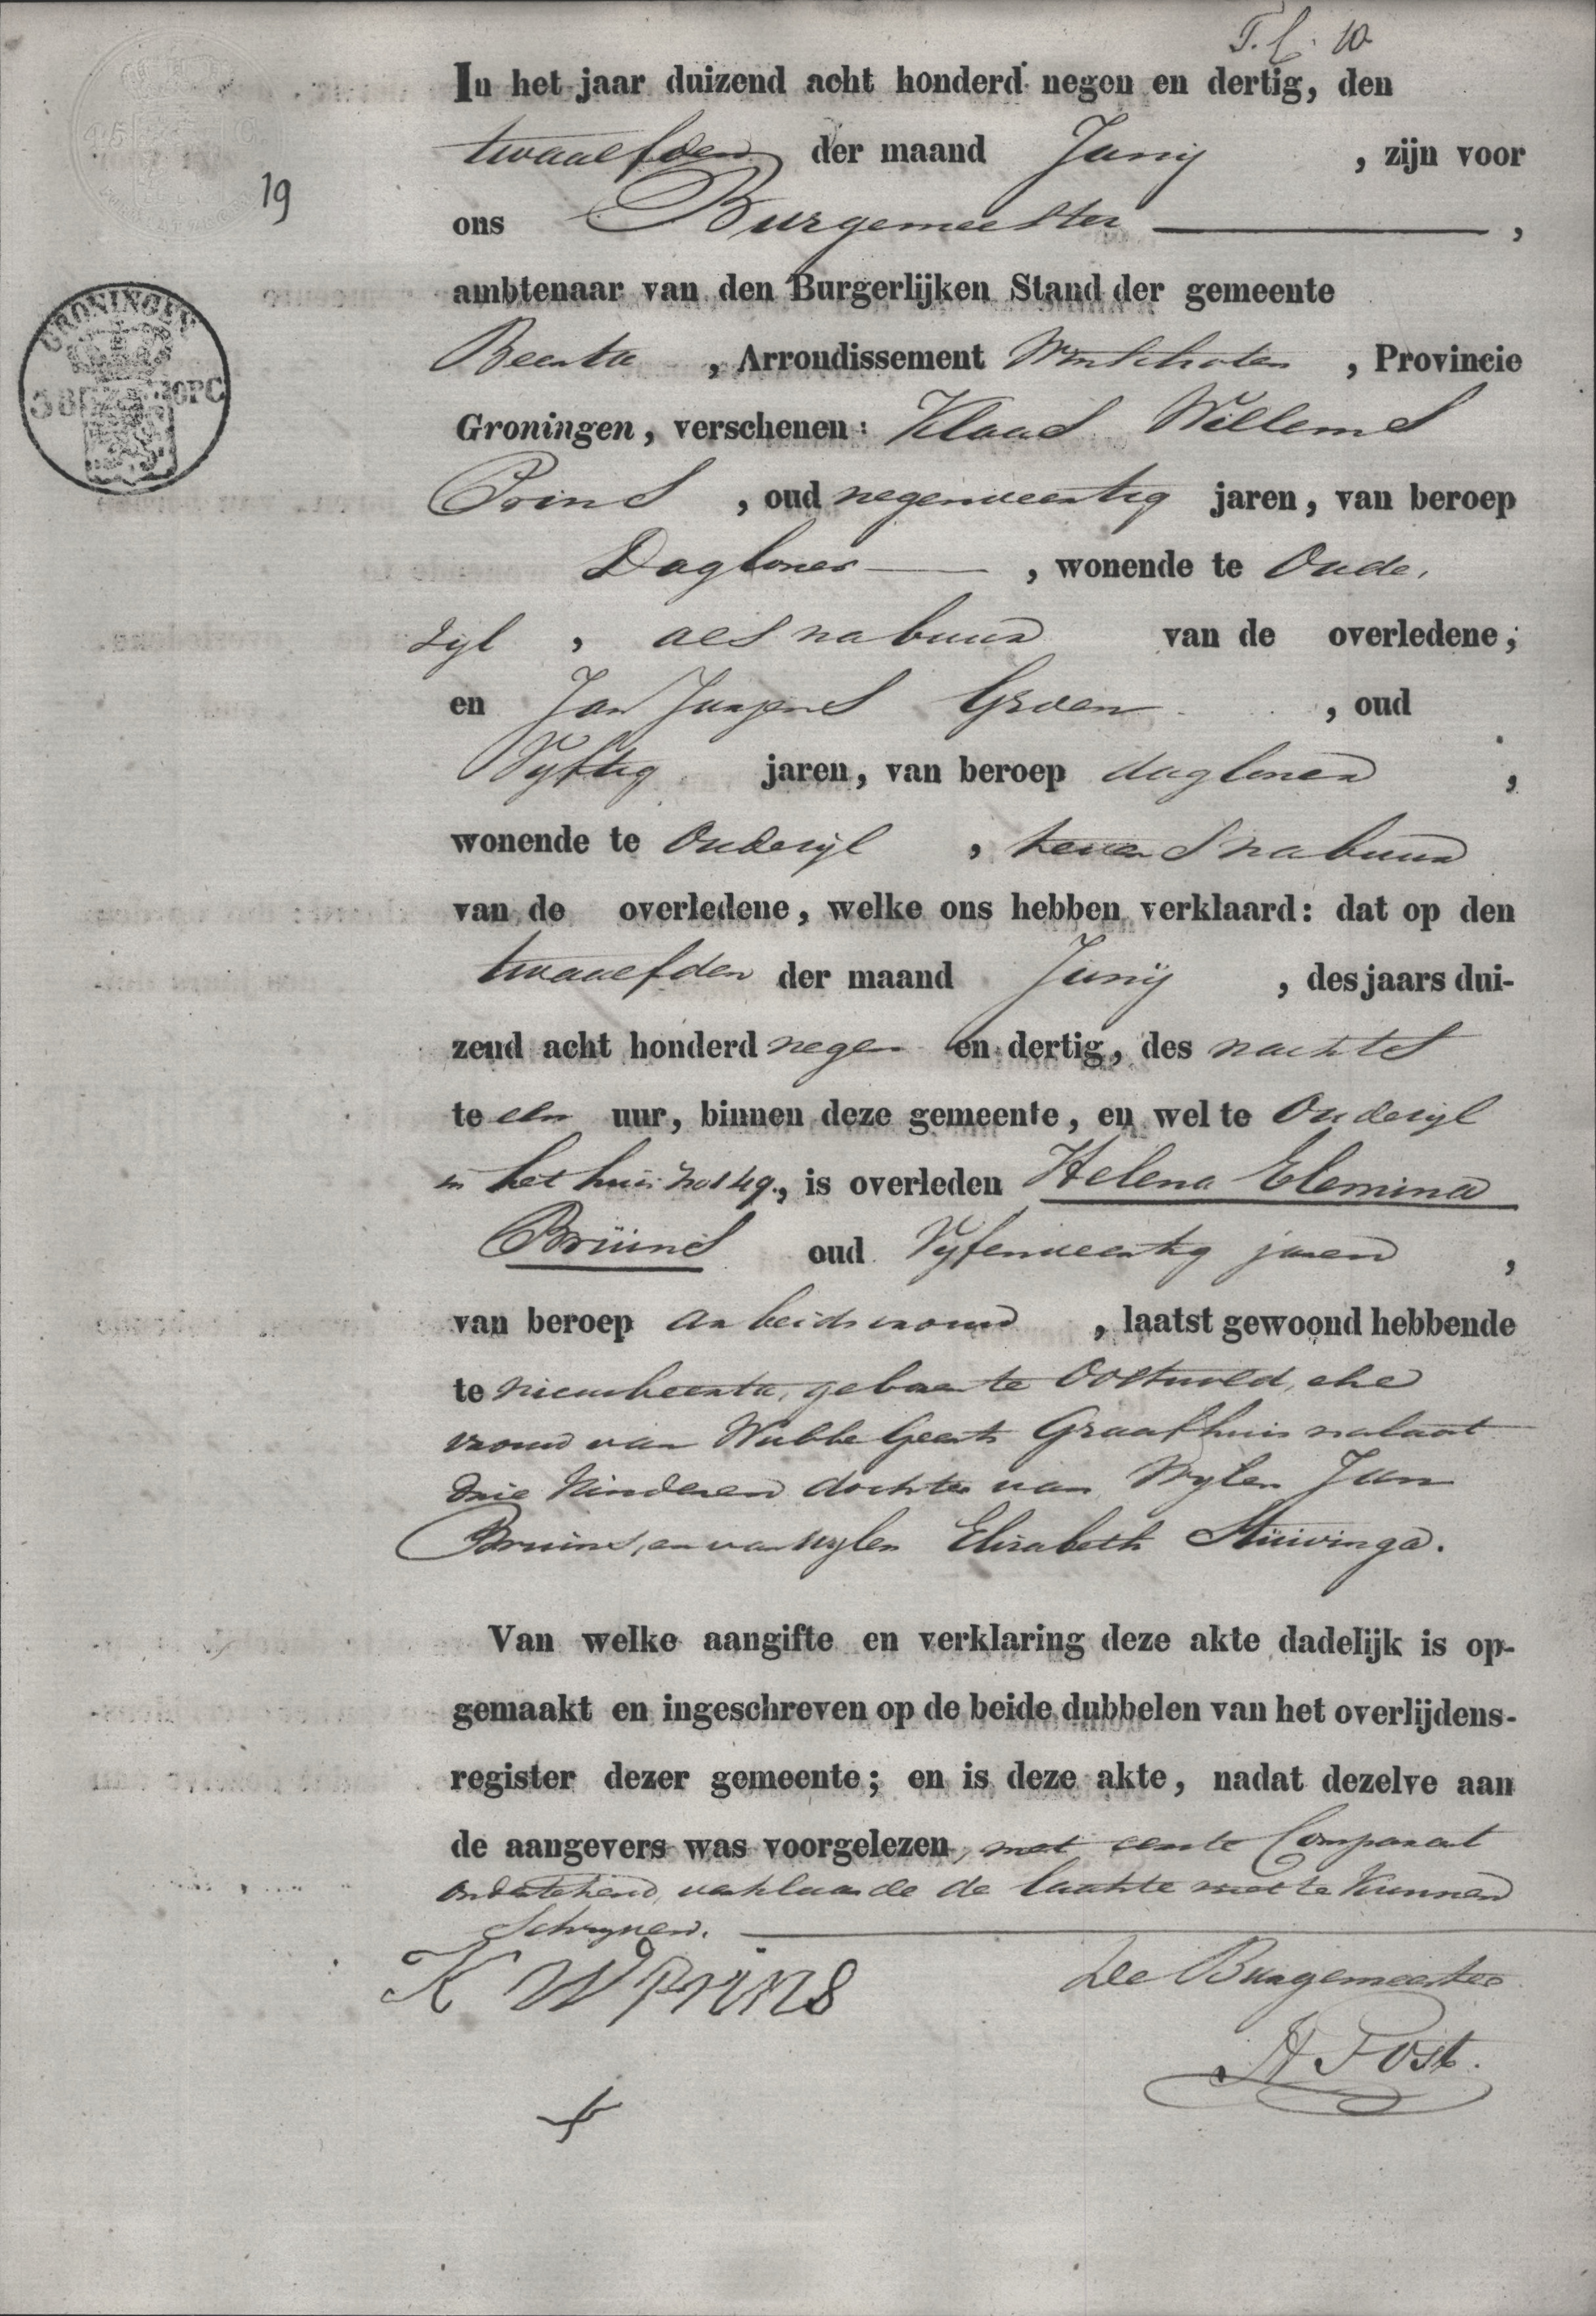 T. C. 10
In het jaar duizend acht honderd negen en dertig, den
twaalfden der maand Junij , zijn voor
19
ons Burgemeester ,
ambtenaar van den Burgerlijken Stand der gemeente
GRONINGEN
Beerta , Arrondissement Winschoten , Provincie
38 OPC
Groningen, verschenen: Klaas Willems
Prins , oud negenveertig jaren, van beroep
Dagloner , wonende te Oude,
zyl , als nabuur van de overledene;
en Jan Jurjens Groen , oud
Vyftig jaren, van beroep dagloner ,
wonende te Oudezyl , tevens nabuur
van de overledene, welke ons hebben verklaard: dat op den
twaalfden der maand Junij , des jaars dui-
zend acht honderd negen en dertig, des nachts
te een uur, binnen deze gemeente, en wel te Oudezyl
in het huis No 149., is overleden Helena Elemina
Brüins oud Vyfenveertig jaren ,
van beroep arbeidsvrouw , laatst gewoond hebbende
te nieuwbeerta, geboren te Oostwold, ehe
vrouw van Wubbe Geerts Graafhuis nalaat
drie Kinderen dochter van Wylen Jan
Bruins, en van wylen Elisabeth Stüivinga.
Van welke aangifte en verklaring deze akte dadelijk is op-
gemaakt en ingeschreven op de beide dubbelen van het overlijdens-
register dezer gemeente; en is deze akte, nadat dezelve aan
de aangevers was voorgelezen, met eerste Comparant
ondertekend, verklaarde de laatste niet te Kunnen
Schryven.
K W Prins De Burgemeester
H Post.